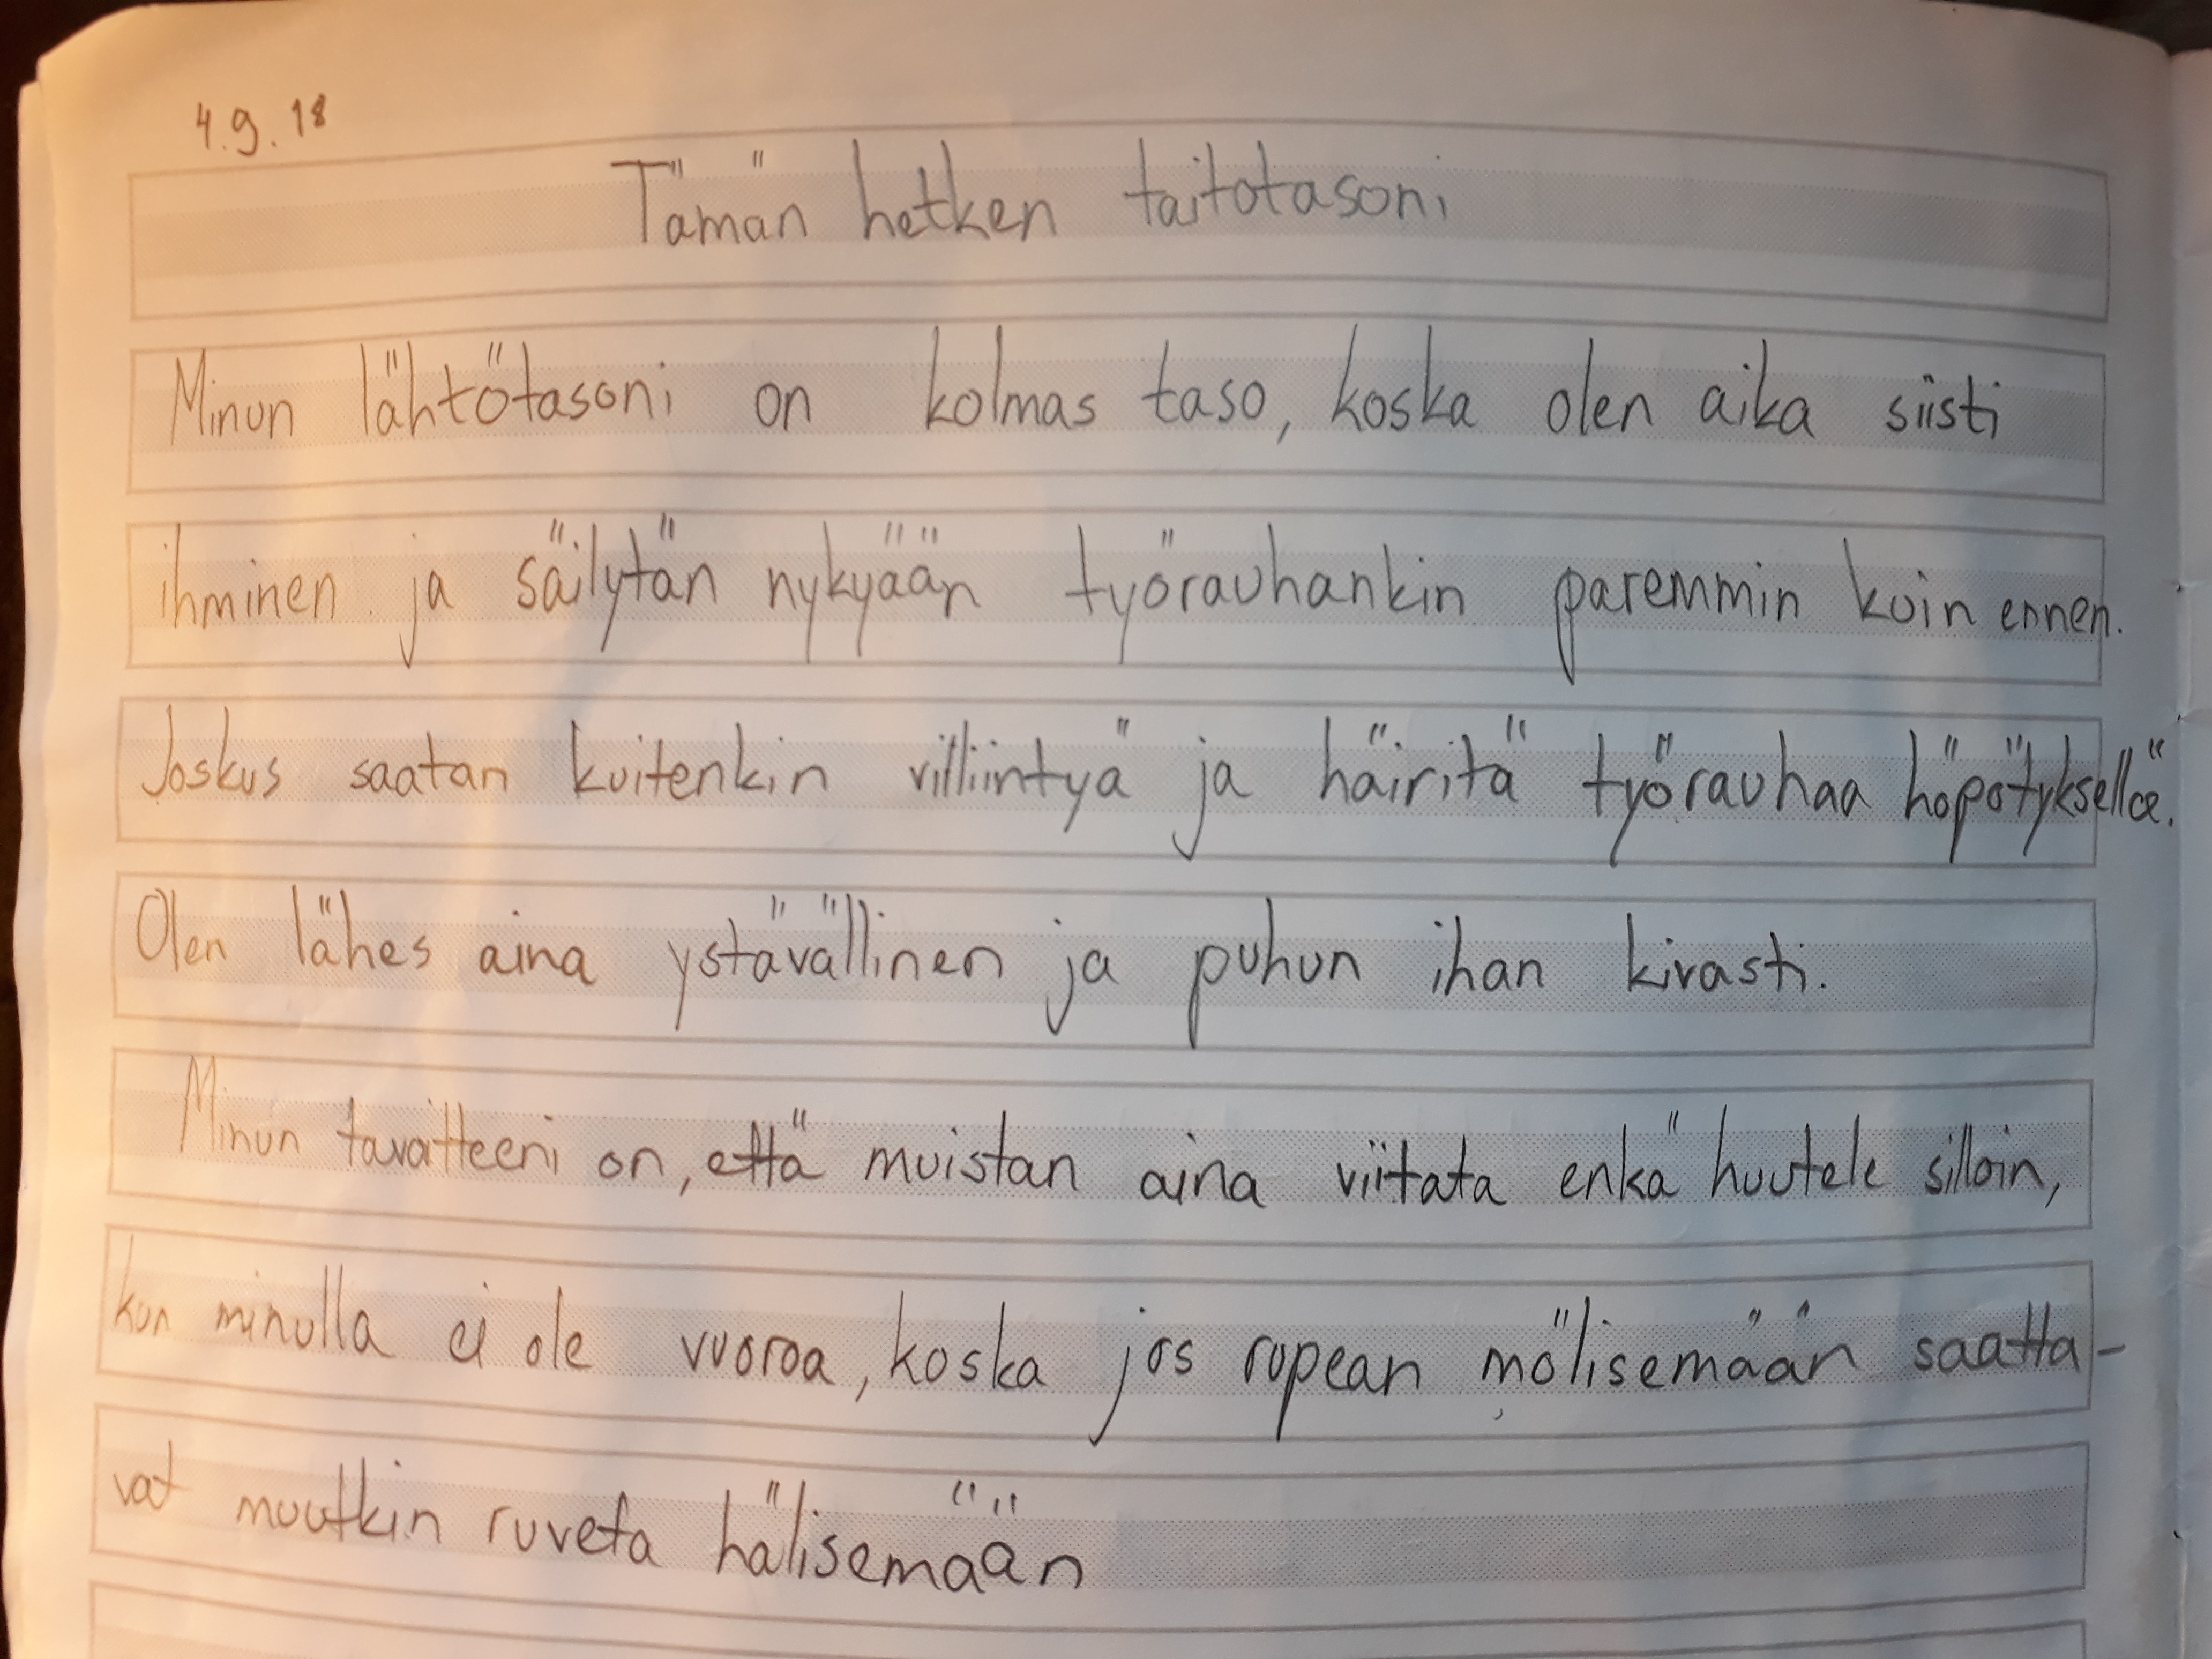 4.9.18
Tämän hetken taitotasoni
Minun lähtötasoni on kolmas taso, koska olen aika siisti
ihminen ja säilytän nykyään työrauhankin paremmin kuin ennen.
Joskus saatan kuitenkin villiintyä ja häiritä työrauhaa höpötyksellä.
Olen lähes aina ystävällinen ja puhun ihan kivasti.
Minun tavoitteeni on, että muistan aina viitata enkä huutele silloin,
kun minulla ei ole vuoroa, koska jos rupean mölisemään saatta-
vat muutkin ruveta hälisemään